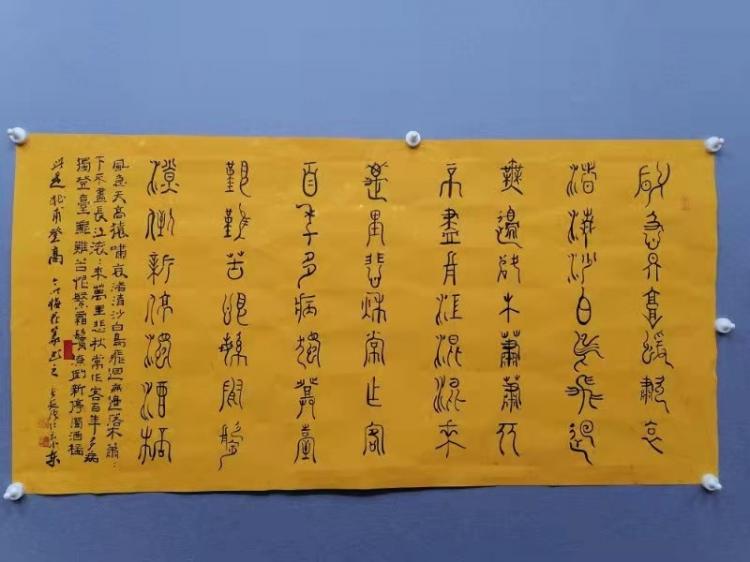 風急天高猿嘯哀
渚清沙白鳥飛迴
無邊落木蕭蕭下
不盡長江滾滾來
萬里悲秋常作客
百年多病獨登臺
艱難苦恨繁霜鬢
潦倒新停濁酒杯
風急天高猿嘯哀渚清沙白鳥飛迴無邊落木蕭:
下不盡長江滚:來萬里悲秋常作客百年多病
獨登臺艱難苦恨繁霜鬢潦倒新停濁酒杯
杜甫登高